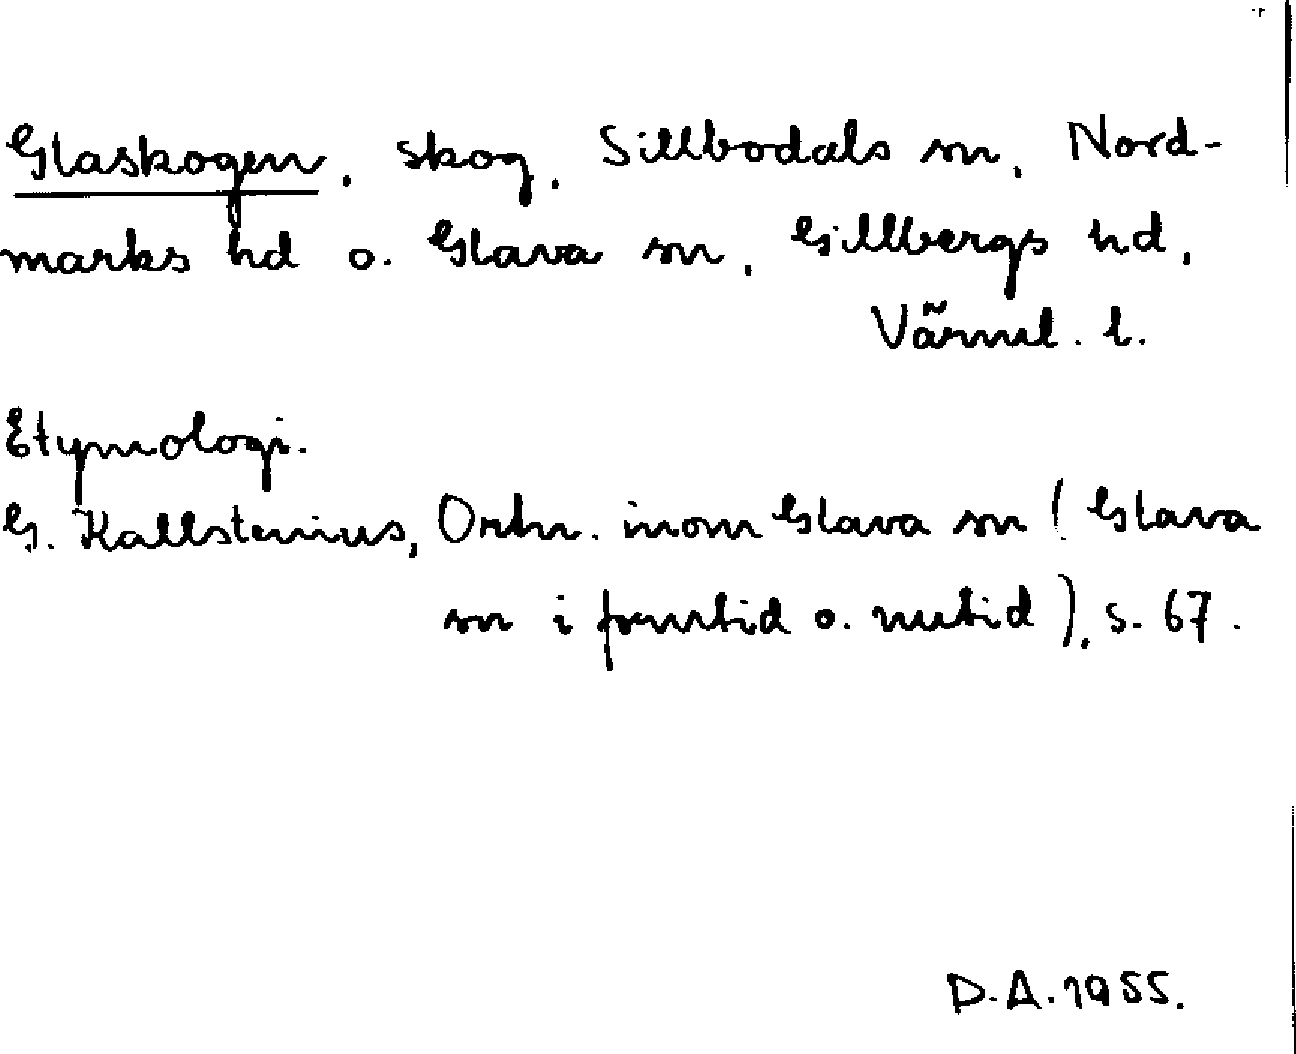 Glaskogen, skog, Sillbodals sn, Nord-
marks hd o. Glava sn, Gillbergs hd,
Värml. l.
Etymologi.
G. Kallstenius, Ortn. inom Glava sn ( Glava
sn i forntid o. nutid ), s. 67.
D.A. 1955.